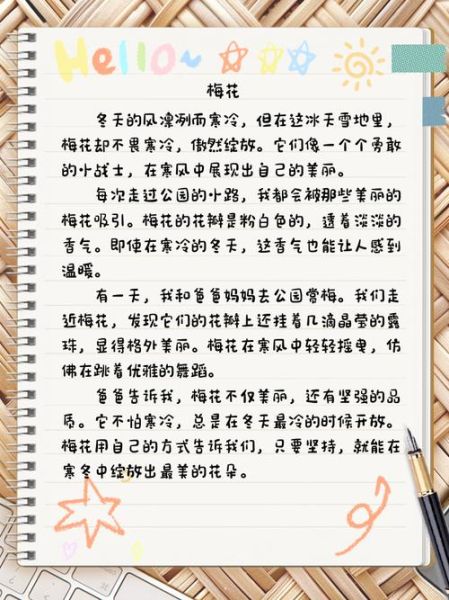 Hello~
梅花
冬天的风凛冽而寒冷，但在这冰天雪地里，
梅花却不畏寒冷，傲然绽放。它们像一个个勇敢
的小战士，在寒风中展现出自己的美丽。
每次走过公园的小路，我都会被那些美丽的
梅花吸引。梅花的花瓣是粉白色的，透着淡淡的
香气。即使在寒冷的冬天，这香气也能让人感到
温暖。
有一天，我和爸爸妈妈去公园赏梅。我们走
近梅花，发现它们的花瓣上还挂着几滴晶莹的露
珠，显得格外美丽。梅花在寒风中轻轻摇曳，仿
佛在跳着优雅的舞蹈。
爸爸告诉我，梅花不仅美丽，还有坚强的品
质。它不怕寒冷，总是在冬天最冷的时候开放。
梅花用自己的方式告诉我们，只要坚持，就能在
寒冬中绽放出最美的花朵。